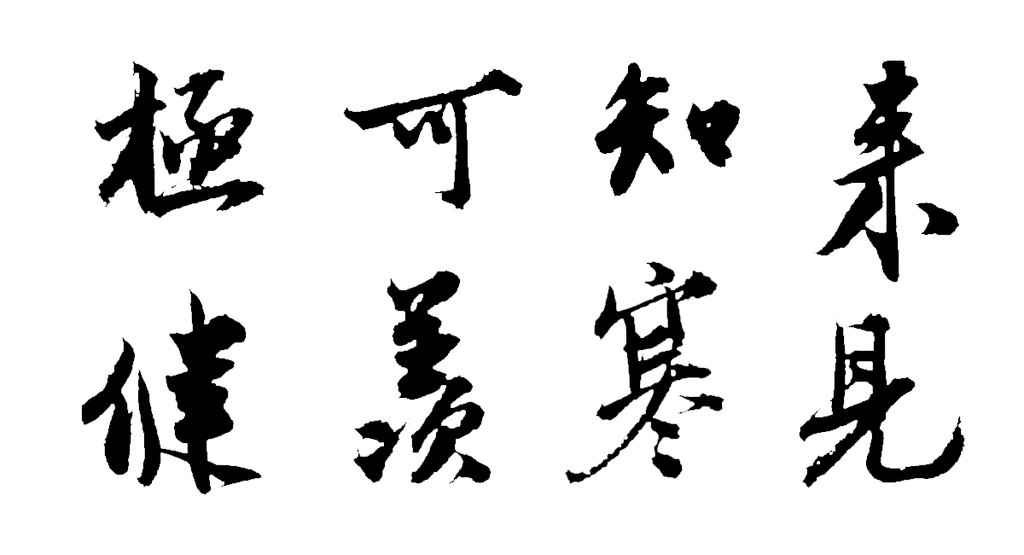 来見
知寒
可羨
極健